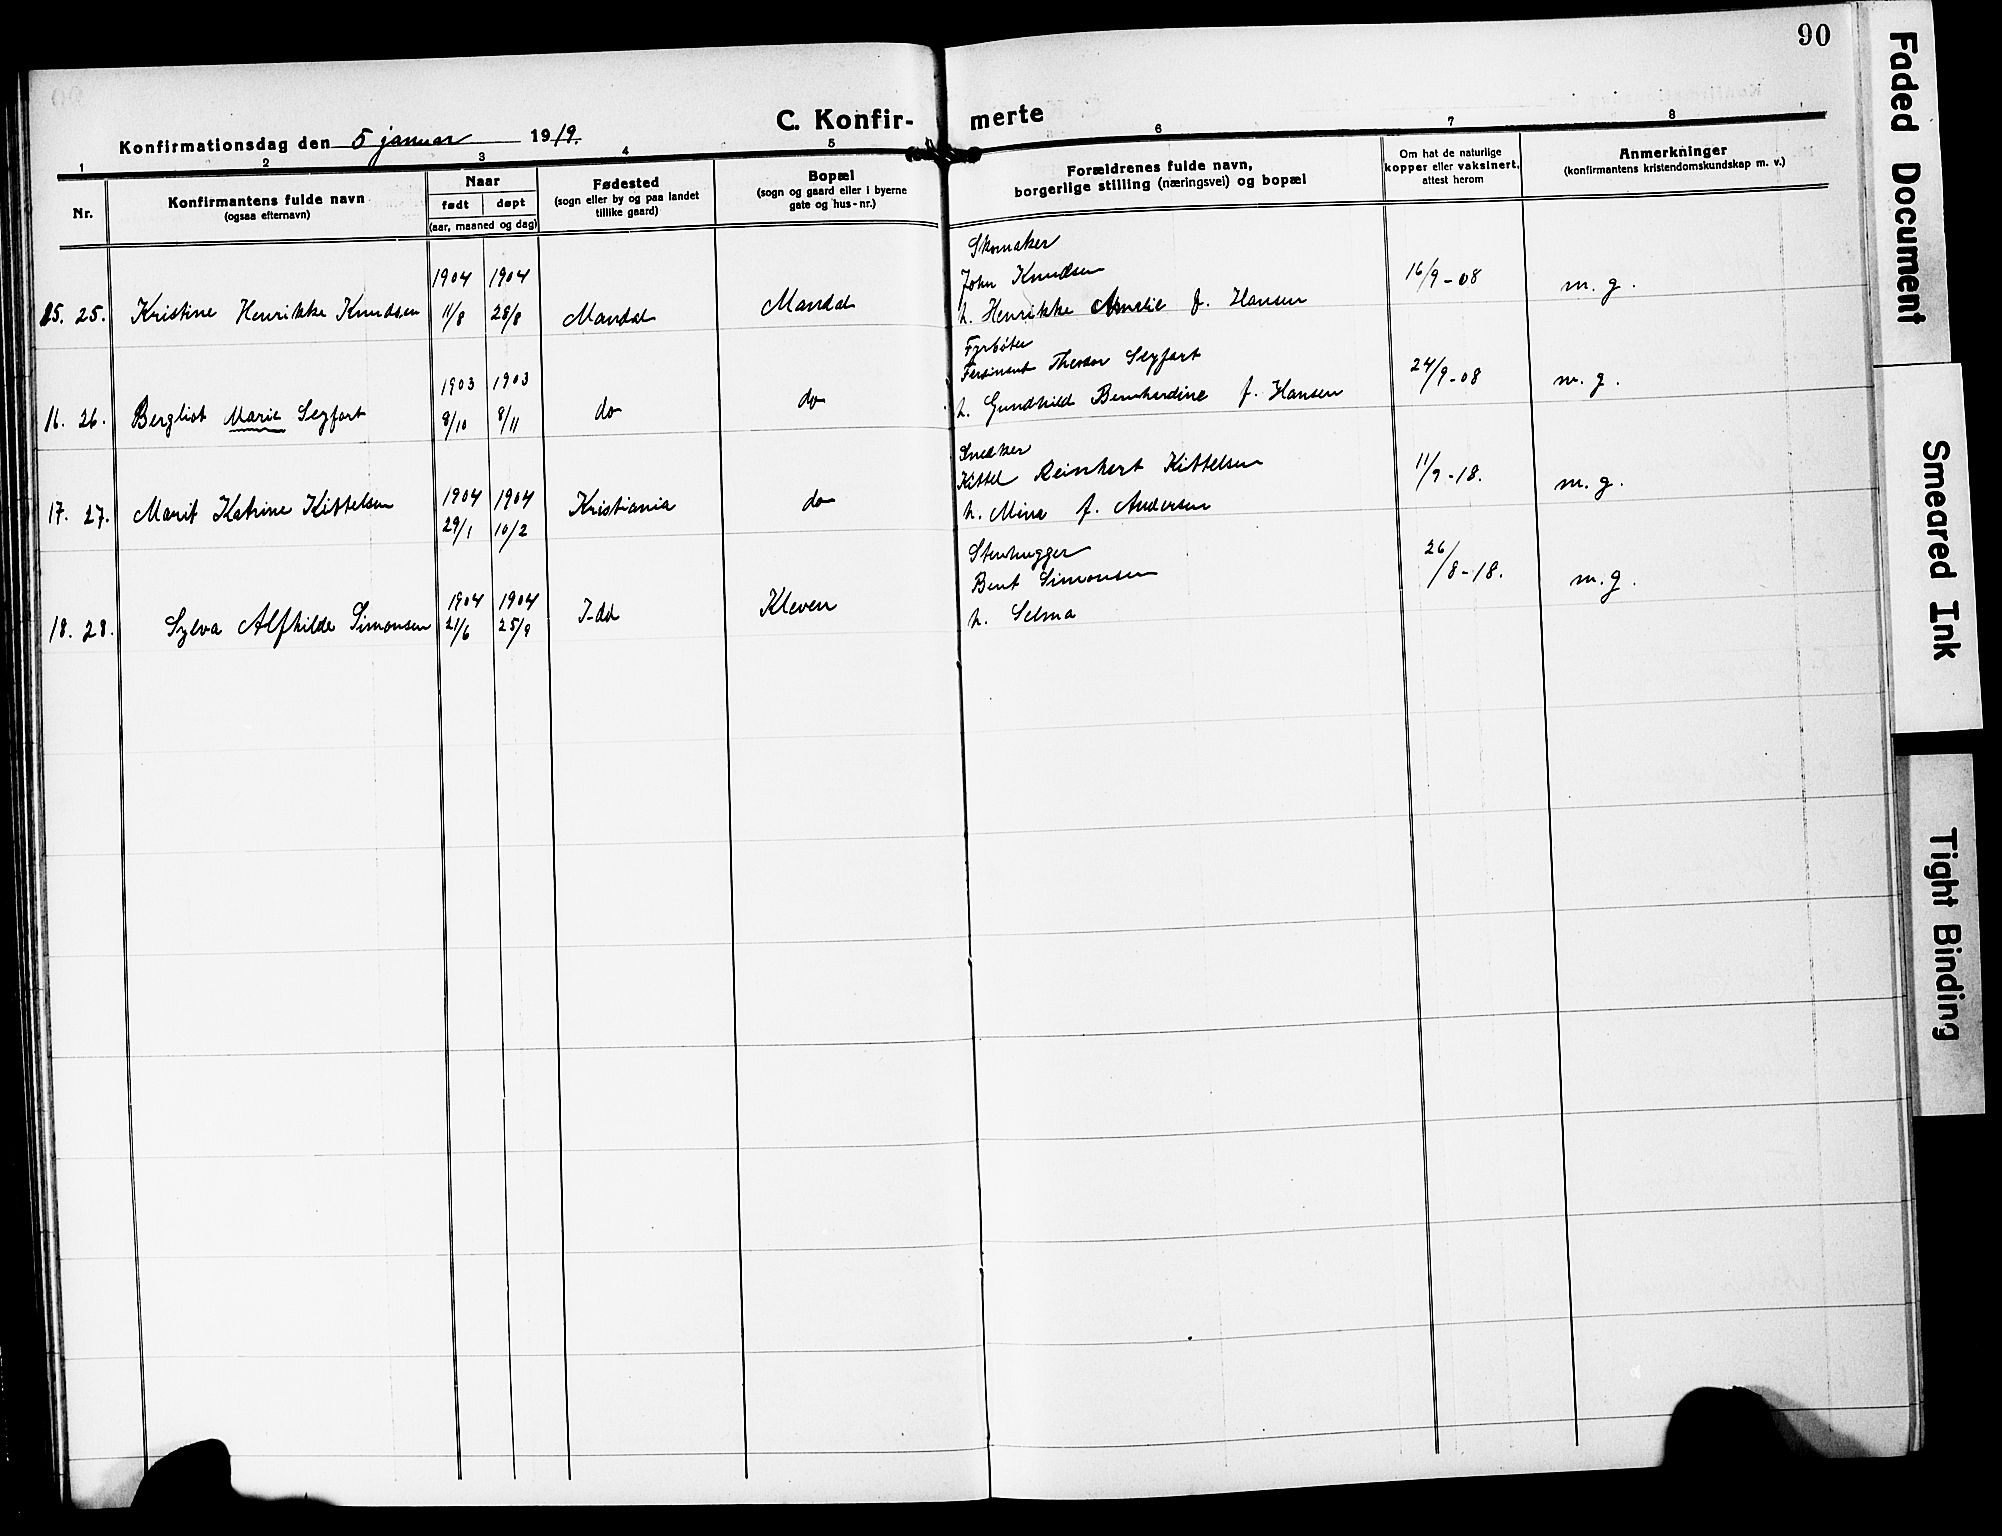 90
C. Konfir- merte
Konfirmationsdag den 5 januar 1919.
1 2 3 4 5 6 7 8
Nr.
Konfirmantens fulde navn
(ogsaa efternavn)
Naar
født døpt
(aar, maaned og dag)
Fødested
(sogn eller by og paa landet
tillike gaard)
Bopæl
(sogn og gaard eller i byerne
gate og hus-nr.)
Forældrenes fulde navn,
borgerlige stilling (næringsvei) og bopæl
Om hat de naturlige
kopper eller vaksinert,
attest herom
Anmerkninger
(konfirmantens kristendomskundskap m. v.)
15. 25. Kristine Henrikke Knudsen
1904 1904
11/8 28/8
Mandal
Mandal
Skomaker
John Knudsen
h. Henrikke Amalie f. Hansen
16/9-08
m. g.
16. 26. Bergliot Marie Seyfart
1903 1903
9/10 8/11
do
do
Fyrbøter
Ferdinant Theodor Seyfart
h. Gundhild Bernhardine f. Hansen
24/9-08
m. g.
17. 27. Marit Katrine Kittelsen
1904 1904
29/1 10/2
Kristiania
do
Snedker
Kittel Reinhert Kittelsen
h. Mina f. Andersen
11/9-18.
m. g.
18. 28. Sylva Alfhilde Simonsen
1904 1904
21/6 25/9
Idd
Kleven
Stenhugger
Bent Simonsen
h. Selma
26/8-18.
m. g.
Faded Document
Smeared Ink
Tight Binding